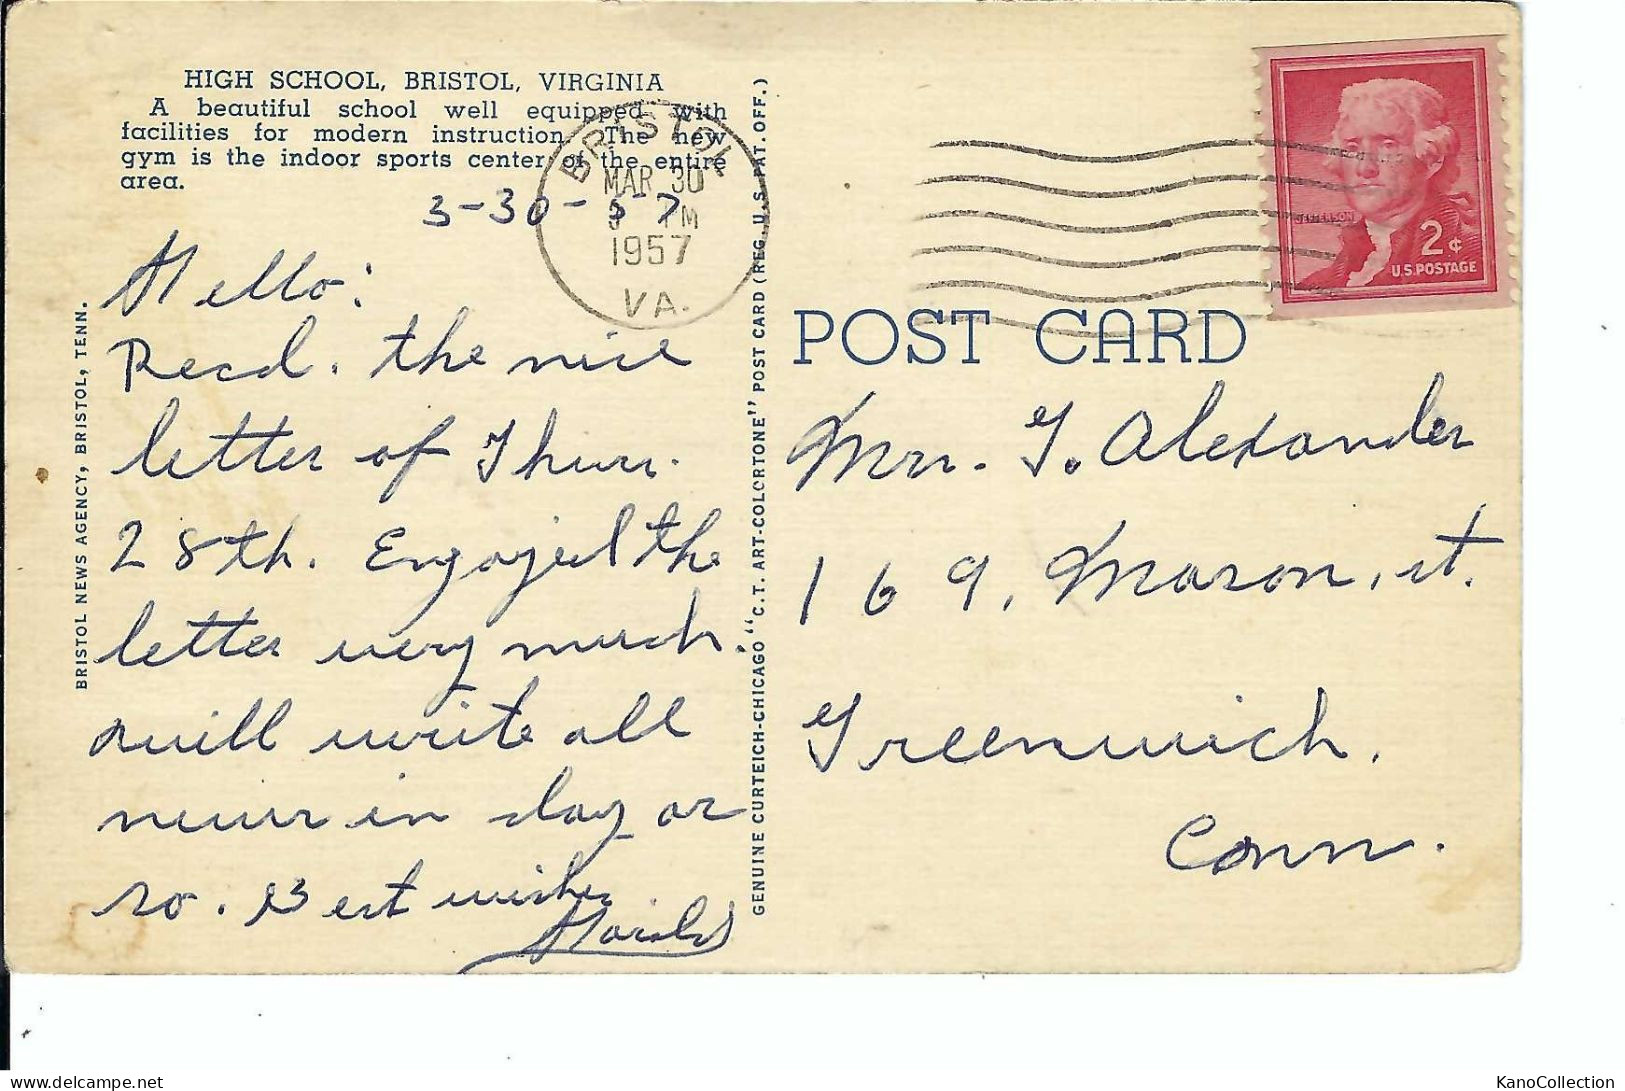 HIGH SCHOOL, BRISTOL, VIRGINIA
A beautiful school well equipped with
facilities for modern instruction. The new
gym is the indoor sports center of the entire
area.
3-30-57
BRISTOL
MAR 30
PM
1957
VA.
Hello:
Recd. the nice
letter of Thurs.
28th. Engoyed the
letter very much.
will write all
news in day or
so. Best wishes
Harold
BRISTOL NEWS AGENCY, BRISTOL, TENN.
GENUINE CURTEICH-CHICAGO "C.T. ART-COLORTONE" POST CARD (REG. U.S. PAT. OFF.)
JEFFERSON
2¢
U.S. POSTAGE
POST CARD
Mrs. G. Alexander
169, Mason, st.
Greenwich,
Conn.
KanoCollection
delcampe.net